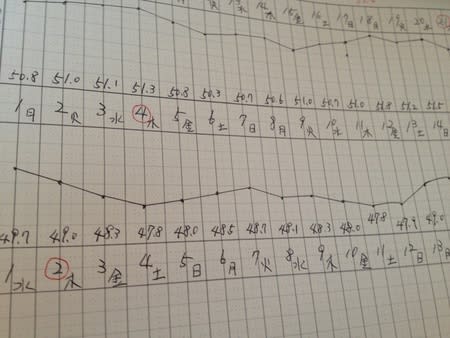 13水 14木 15金 16土 17日 18月 19火 20水 21
50.8 51.0 51.1 51.3 50.8 50.3 50.7 50.6 51.0 50.7 51.0 51.8 51.2 51.5
1日 2火 3水 4木 5金 6土 7日 8月 9火 10水 11木 12金 13土 14日
49.7 49.0 48.3 47.8 48.0 48.5 48.7 48.1 48.3 48.0 47.8 47.9 49.0
1水 2木 3金 4土 5日 6月 7火 8水 9木 10金 11土 12日 13月